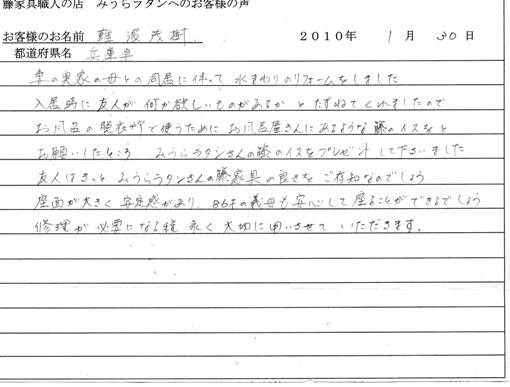 藤家具職人の店 みうらラタンへのお客様の声
お客様のお名前 難波茂樹 2010年 1月 30日
都道府県名 兵庫県
妻の実家の母との同居に伴って 水まわりのリフォームをしました
入居時に友人が 何か欲しいものがあるか とたずねてくれましたので
お風呂の脱衣所で使うために お風呂屋さんにあるような 籐のイスをと
お願いしたところ みうらラタンさんの籐のイスをプレゼント して下さいました
友人はきっと みうらラタンさんの籐家具の良さを ご存知なのでしょう
座面が大きく 安定感があり、86才の義母も 安心して座ることができるでしょう
修理が 必要になる程 永く大切に用いさせて いただきます。